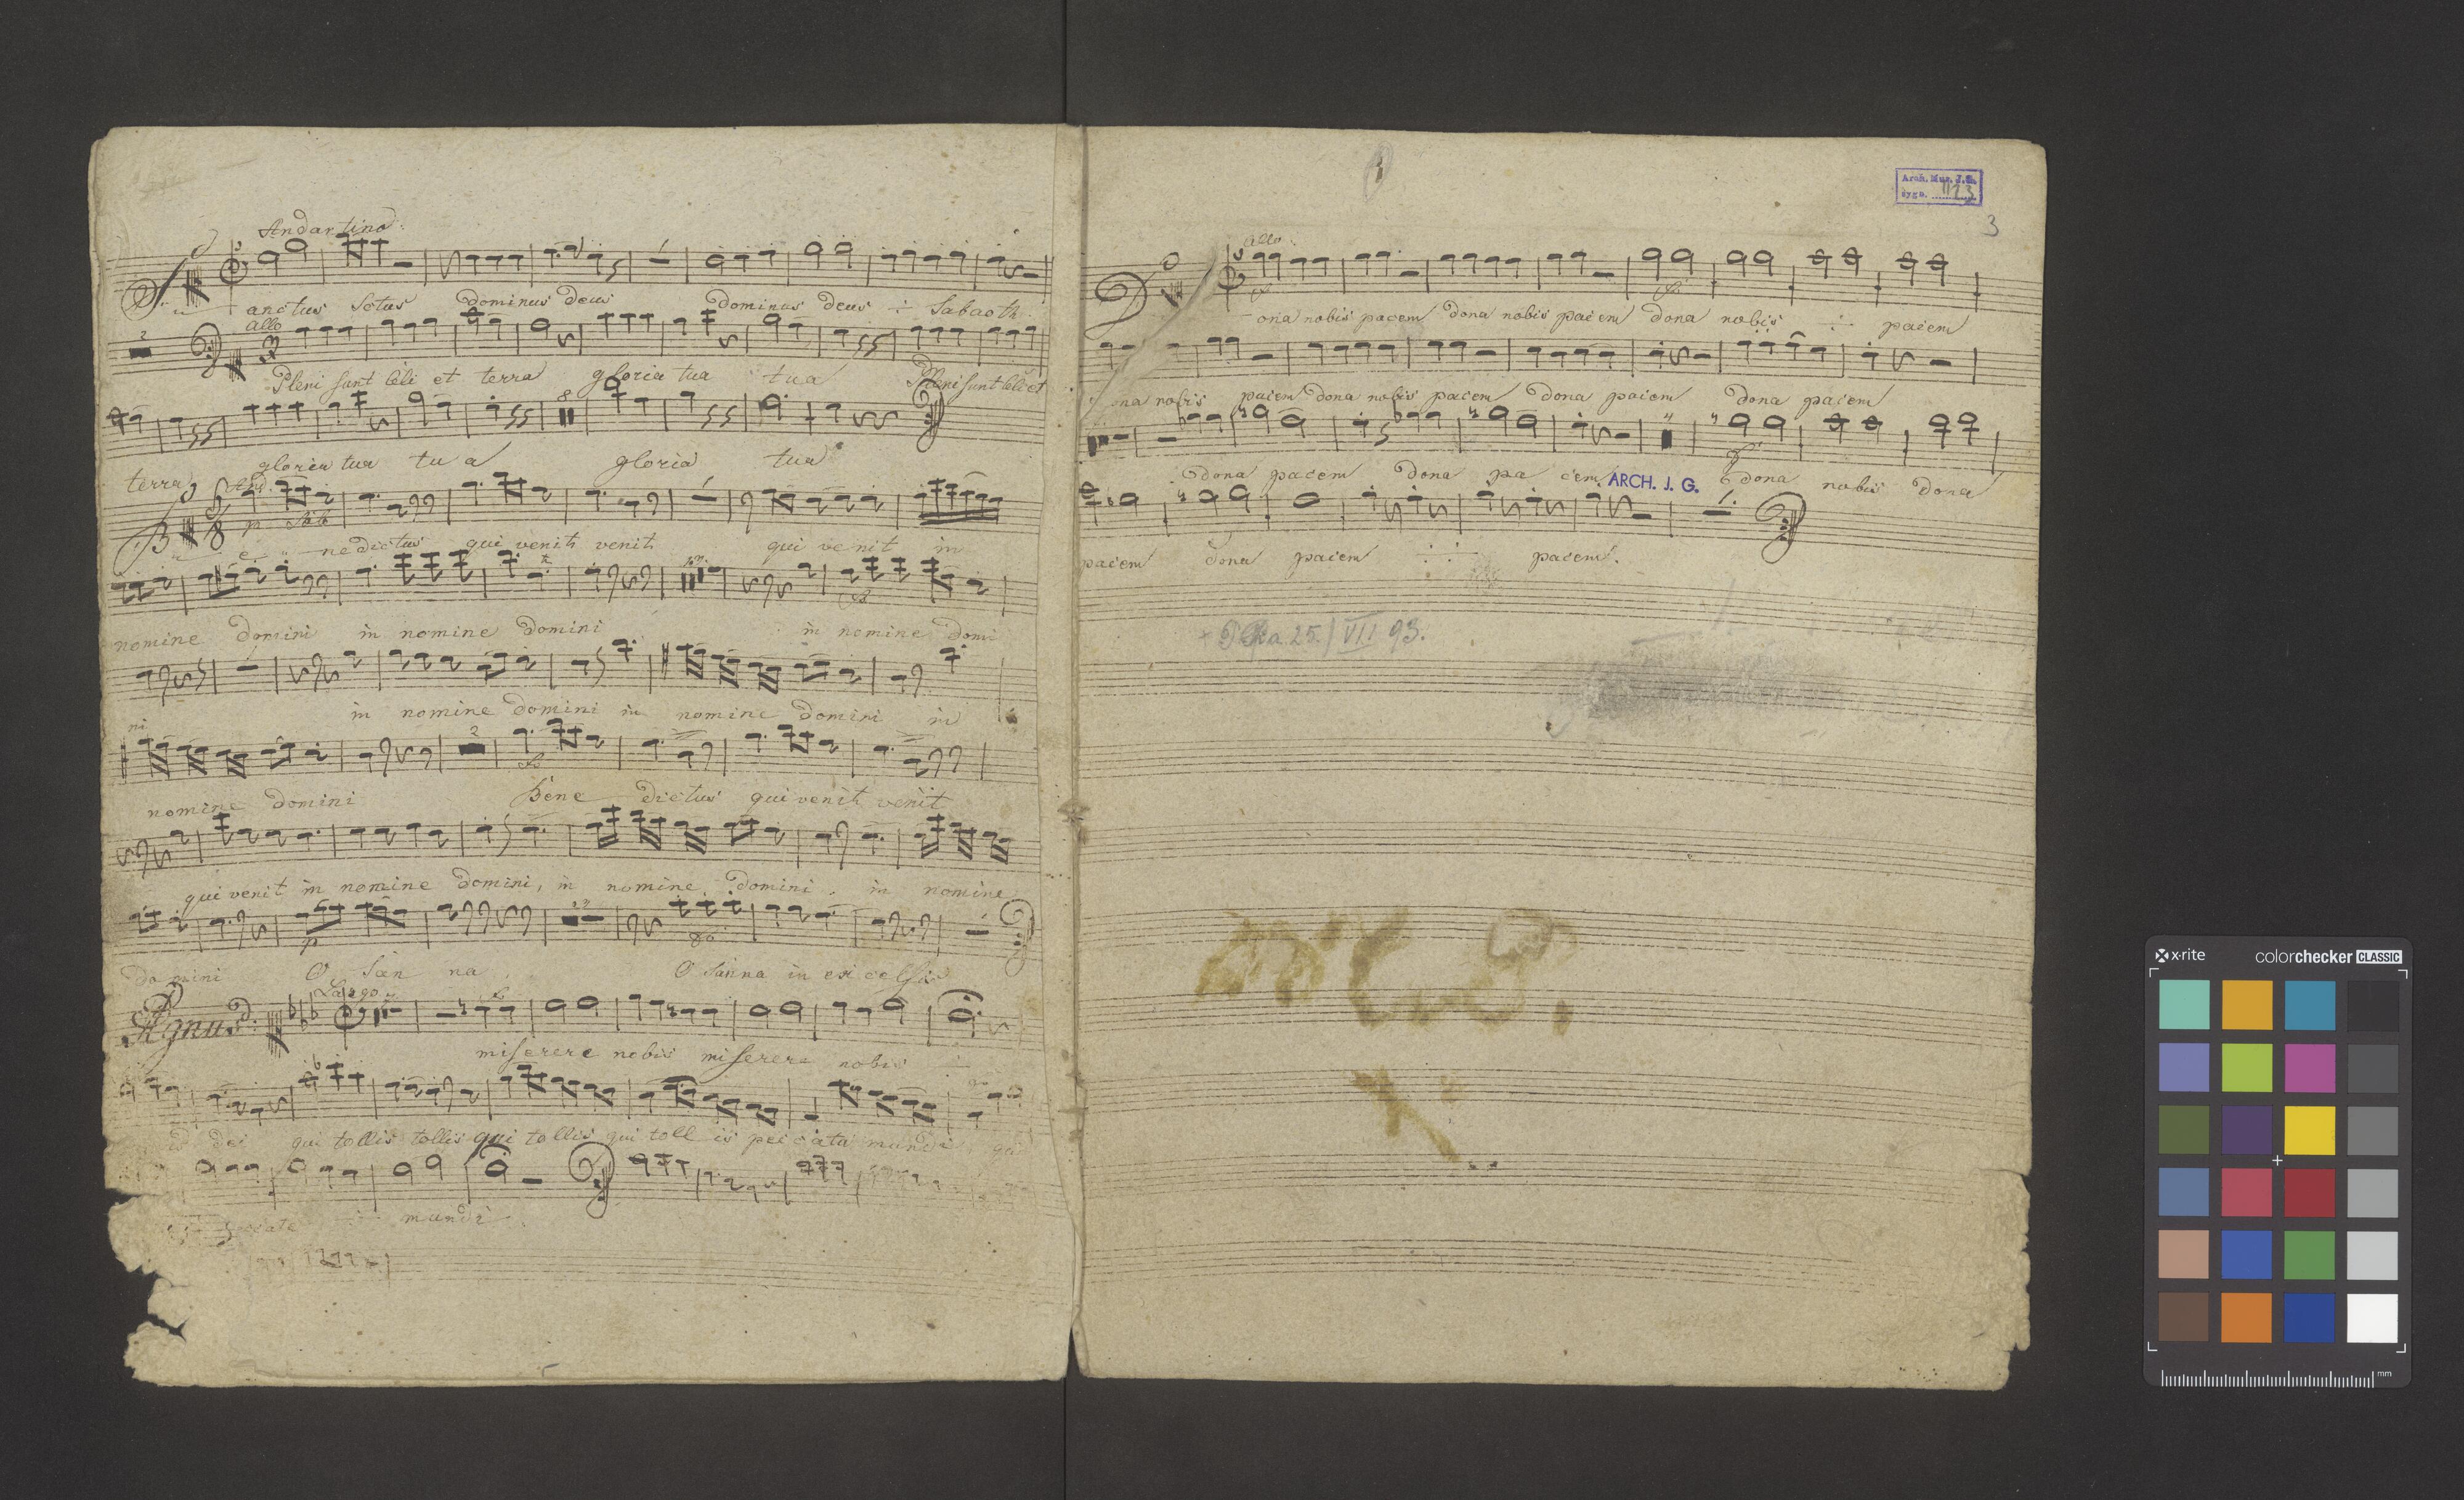 Andantino
Sanctus Sctus Dominus Deus Dominus Deus ÷ Sabaoth
Allo
2
Pleni sunt celi et terra gloria tua tua Pleni sunt celi et
8
terra gloria tua tua gloria tua
And.
p
Benedictus qui venit venit qui venit in
nomine Domini in nomine Domini in nomine Domi
ni in nomine Domini in nomine Domini in
2
nomine Domini Bene dictus qui venit venit
qui venit in nomine Domini, in nomine Domini, in nomine
p
Domini O San na O Sanna in excelsis
Largo
Agnus
miserere nobis miserere nobis
dei qui tollis tollis qui tollis qui toll is peccata mundi, qui
÷ mundi
Arch. Mus. J.G.
sygn. 113
3
Allo
Dona nobis pacem Dona nobis pacem Dona nobis ÷ pacem
Dona nobis pacem Dona nobis pacem Dona pacem Dona pacem
Dona pacem Dona pa cem ARCH. J. G. Dona nobis Dona
pacem Dona pacem ÷ ÷ pacem.
25/VII 93.
x-rite
colorchecker CLASSIC
mm